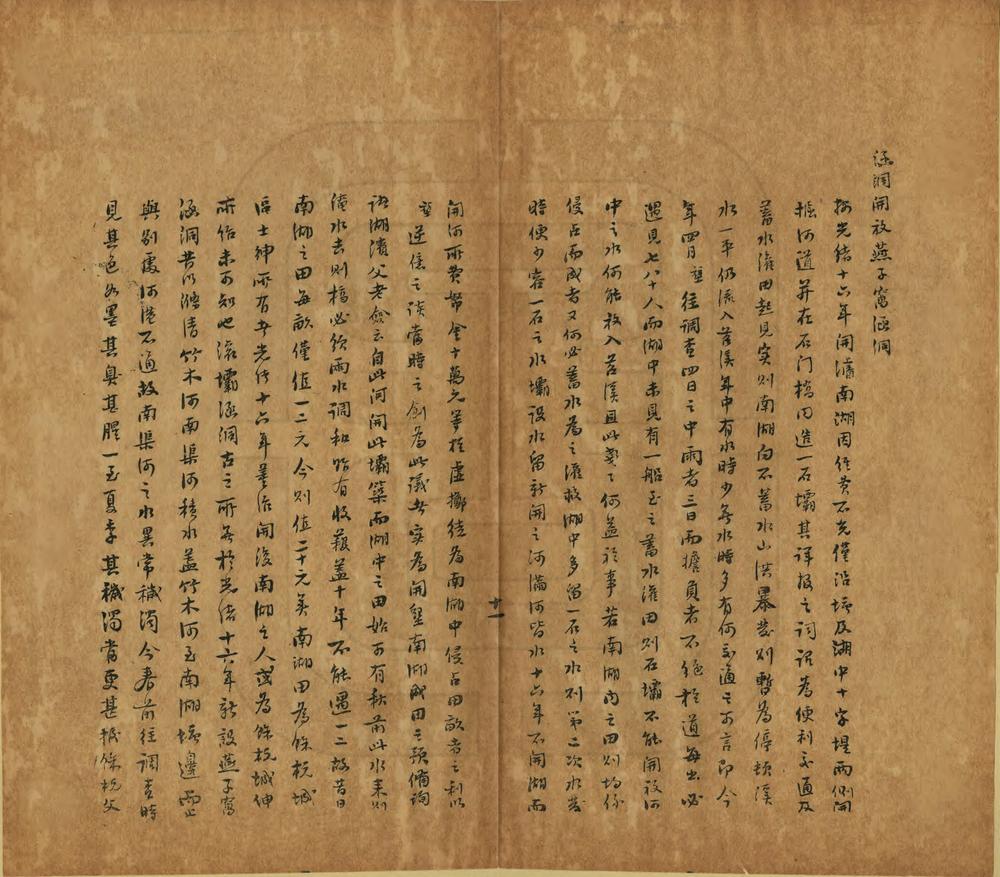 涵洞開放燕子窩涵洞
按光緒十六年開濬南湖因經費不充僅沿塘及湖中十字堤兩側開
掘河道并在石门橋內造一石壩其詳报之詞謂為便利交通及
蓄水灌田起見实則南湖向不蓄水山洪暴發則暫為停頓溪
水一平仍流入苕溪年中有水時少無水時多有何交通之可言即今
年四月 往調查四日之中雨者三日而擔負者不絕於道每出必
遇見七八十人而湖中未見有一船至之蓄水灌田則石壩不能開放河
中之水何能放入苕溪且此數之何益於事若南湖內之田則均係
侵占而成者又何必蓄水為之灌救湖中多留一石之水則第二次水發
時便少容一石之水壩設水留新開之河滿河皆水十六年不開湖而
十一
開河所費幣金十萬元等於虛擲徒為南湖中侵占田畝者之利以
逆億之談當時之創為此議者实為開墾南湖成田之預備詢
諸湖濱父老僉云自此河開此壩築而湖中之田始可有秋前此水来則
淹水去則槁必須雨水調和始有收穫蓋十年不能遇一二故昔日
南湖之田每畝僅值一二元今則值二十元矣南湖田為餘杭城
區士紳所有者光緒十六年董治開浚南湖之人或為餘杭城紳
所紿未可知也滾壩涵洞古之所無於光緒十六年新設燕子窩
涵洞昔以濟清竹木河南渠河積水蓋竹木河至南湖塘邊而止
與別處河港不通故南渠河之水異常穢濁今春前往調查時
見其色如墨其臭甚腥一至夏季其穢濁當更甚抵餘杭父